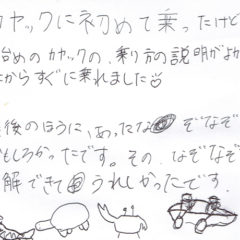 カヤックに初めて乗ったけど
始めのカヤックの、乗り方の説明がよか
からすぐに乗れました
後のほうに、あったな ぞなぞ
もしろかったです。その、なぞなぞ
解できてうれしかったです。